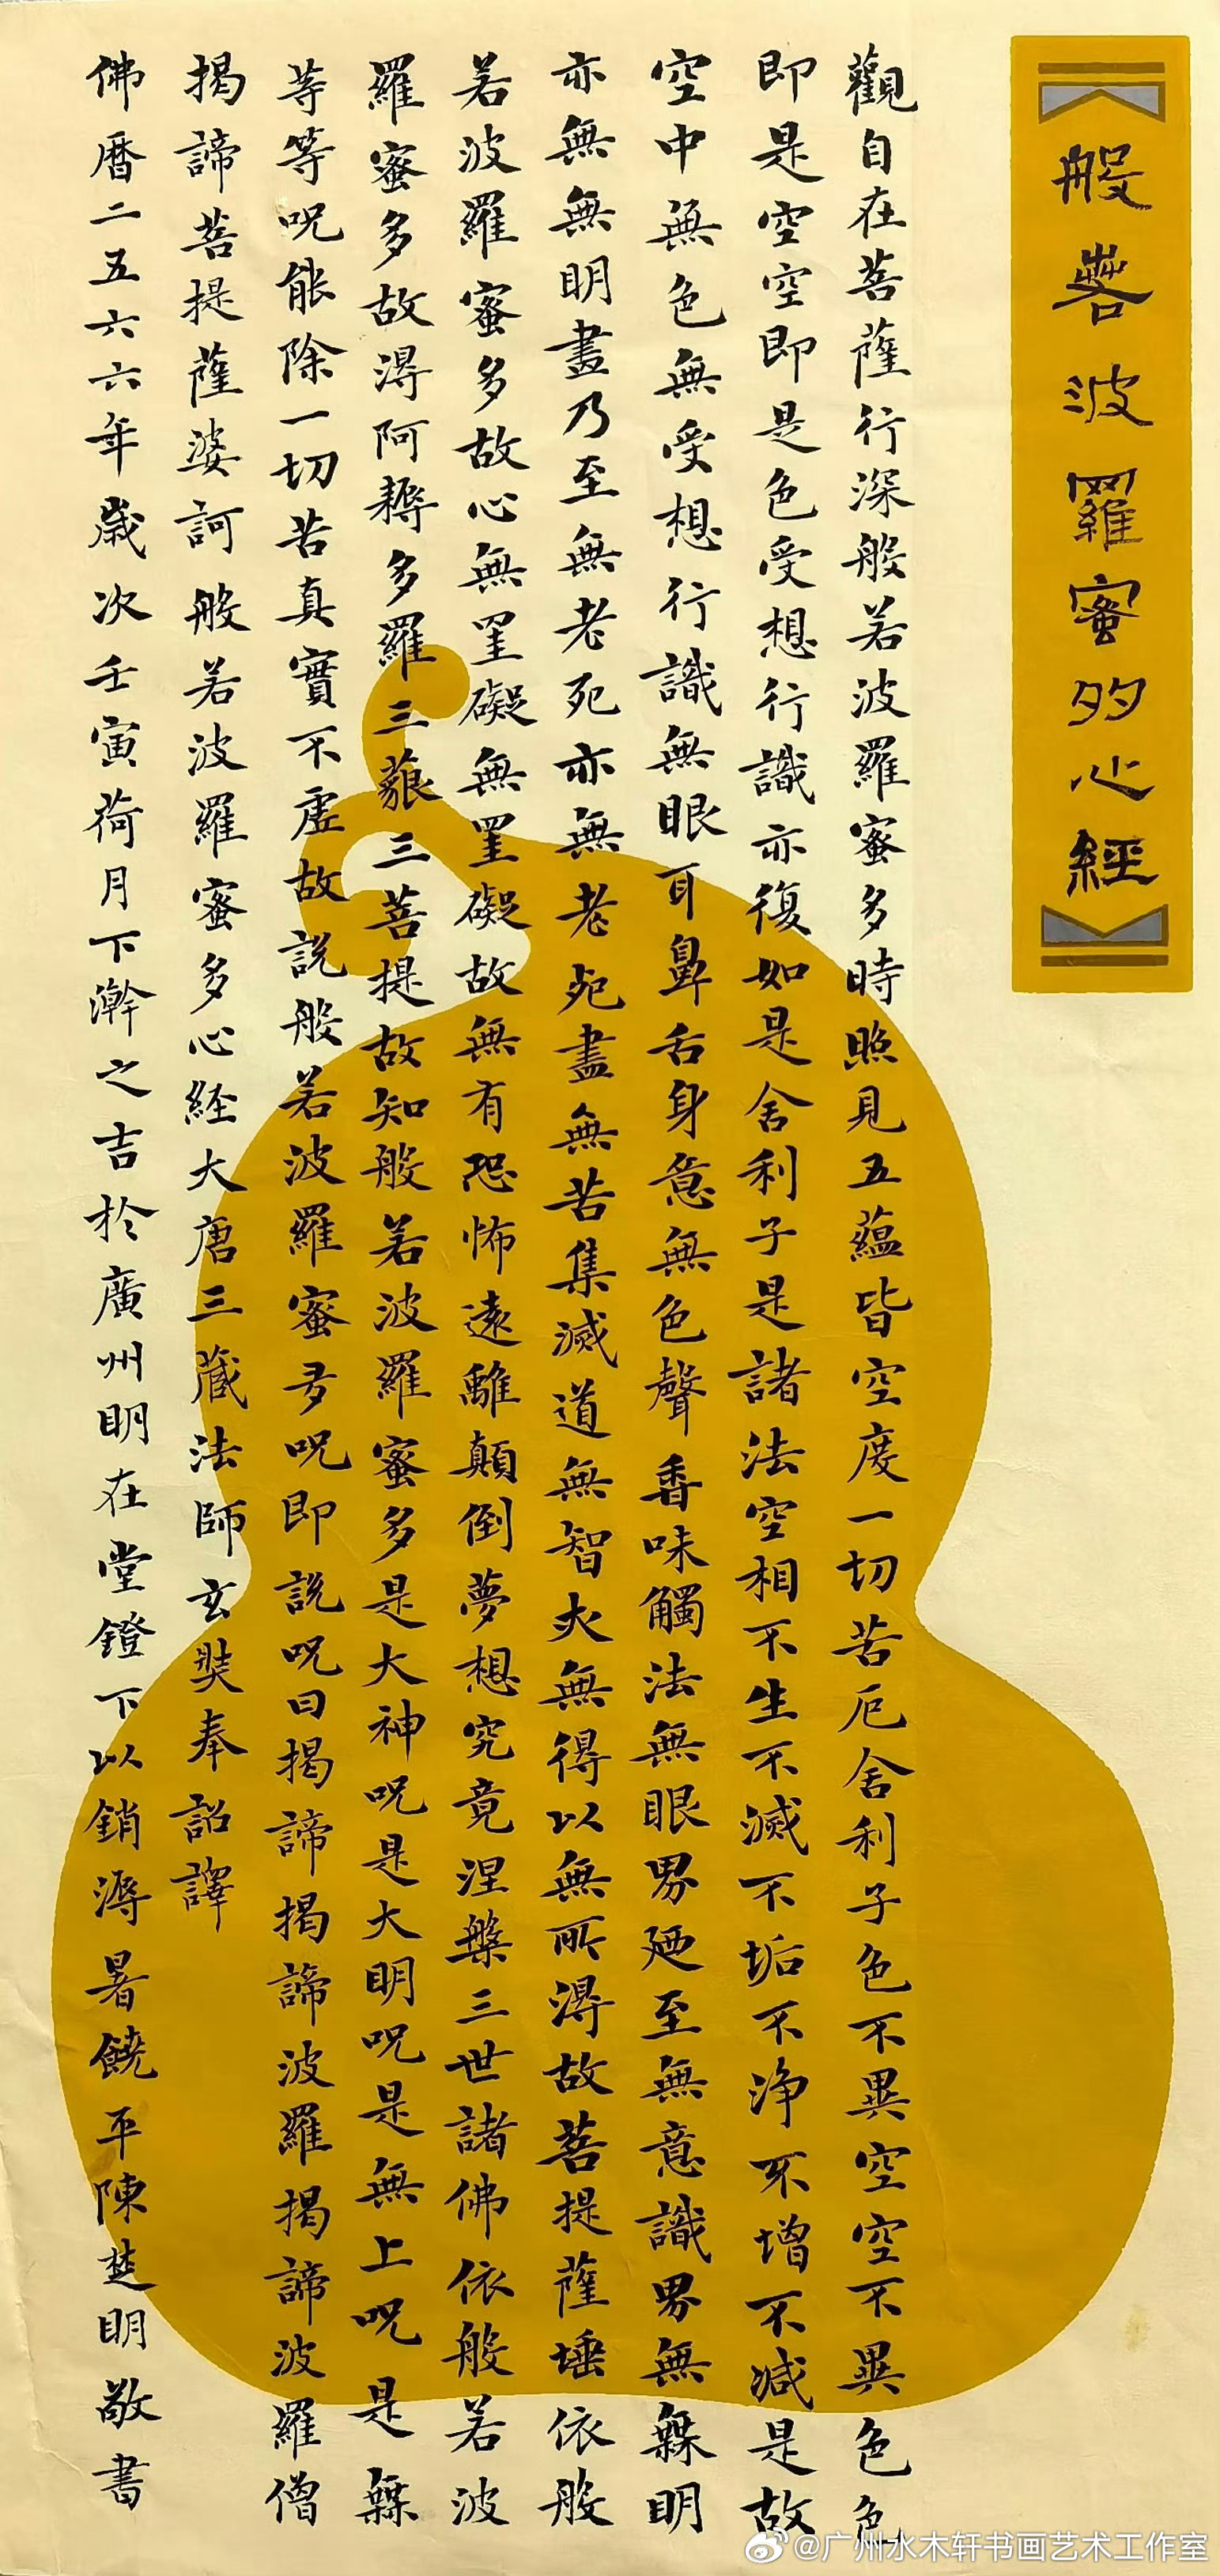 般若波羅蜜多心經
觀自在菩薩行深般若波羅蜜多時照見五蘊皆空度一切苦厄舍利子色不異空空不異色色
即是空空即是色受想行識亦復如是舍利子是諸法空相不生不滅不垢不淨不增不減是故
空中無色無受想行識無眼耳鼻舌身意無色聲香味觸法無眼界廼至無意識界無無明
亦無無明盡乃至無老死亦無老死盡無苦集滅道無智亦無得以無所得故菩提薩埵依般
若波羅蜜多故心無罣礙無罣礙故無有恐怖遠離顛倒夢想究竟涅槃三世諸佛依般若波
羅蜜多故得阿耨多羅三藐三菩提故知般若波羅蜜多是大神呪是大明呪是無上呪是無
等等呪能除一切苦真實不虛故說般若波羅蜜多呪即說呪曰揭諦揭諦波羅揭諦波羅僧
揭諦菩提薩婆訶般若波羅蜜多心經大唐三藏法師玄奘奉詔譯
佛曆二五六六年歲次壬寅荷月下澣之吉於廣州明在堂鐙下以銷溽暑饒平陳楚明敬書
@广州水木轩书画艺术工作室